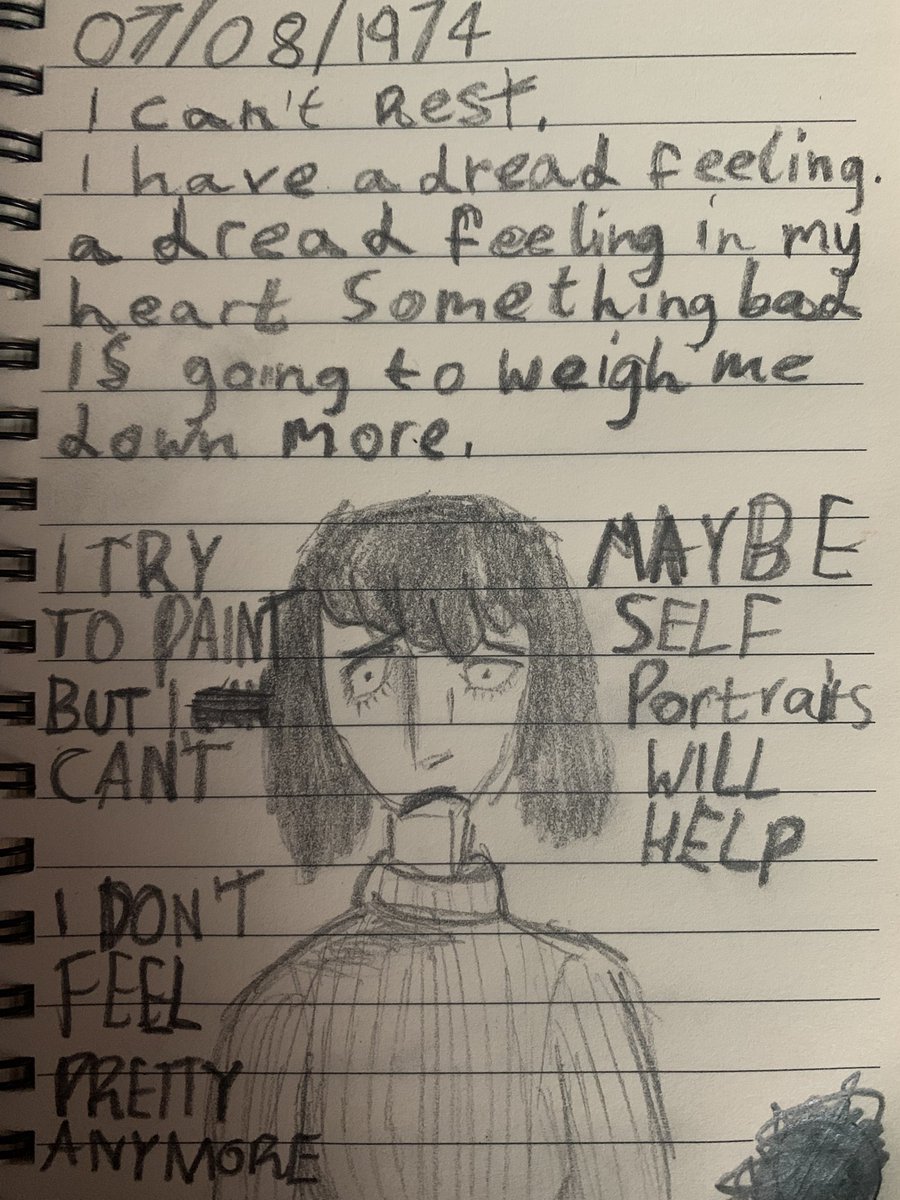 07/08/1974
I can't Rest.
I have a dread feeling.
a dread feeling in my
heart Something bad
IS going to weigh me
down more.
I TRY
TO PAINT
BUT I
CAN'T
MAYBE
SELF
Portraits
WILL
HELP
I DON'T
FEEL
PRETTY
ANYMORE